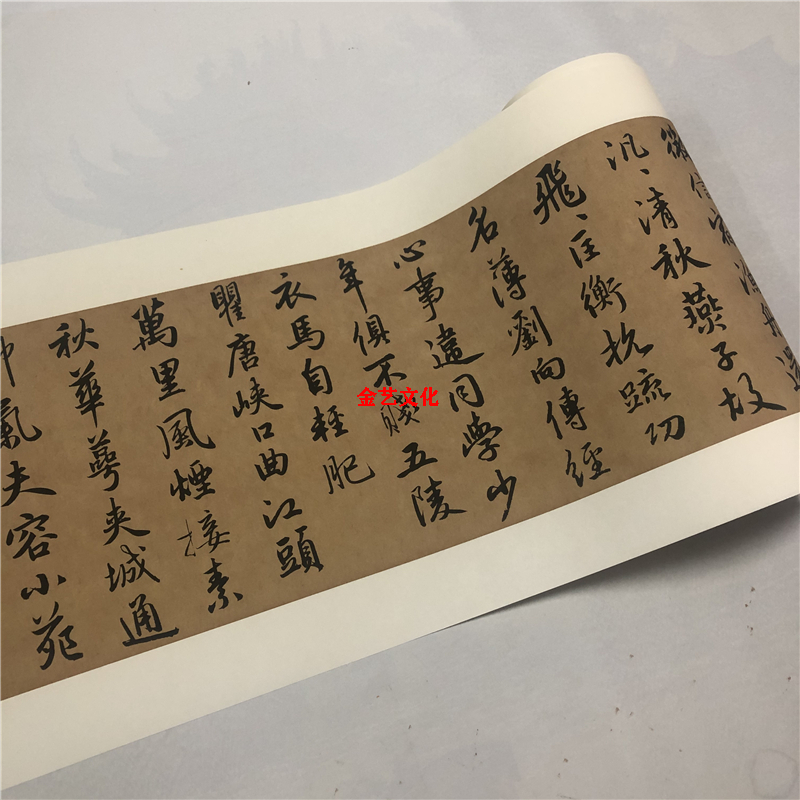 微信宿漁船還
汎〻清秋燕子故
飛〻匡衡抗疏功
名薄劉向傳經
心事違同學少
年俱不賤五陵
衣馬自輕肥
瞿唐峽口曲江頭
萬里風煙接素
秋華萼夾城通
御氣夫容小苑
金艺文化